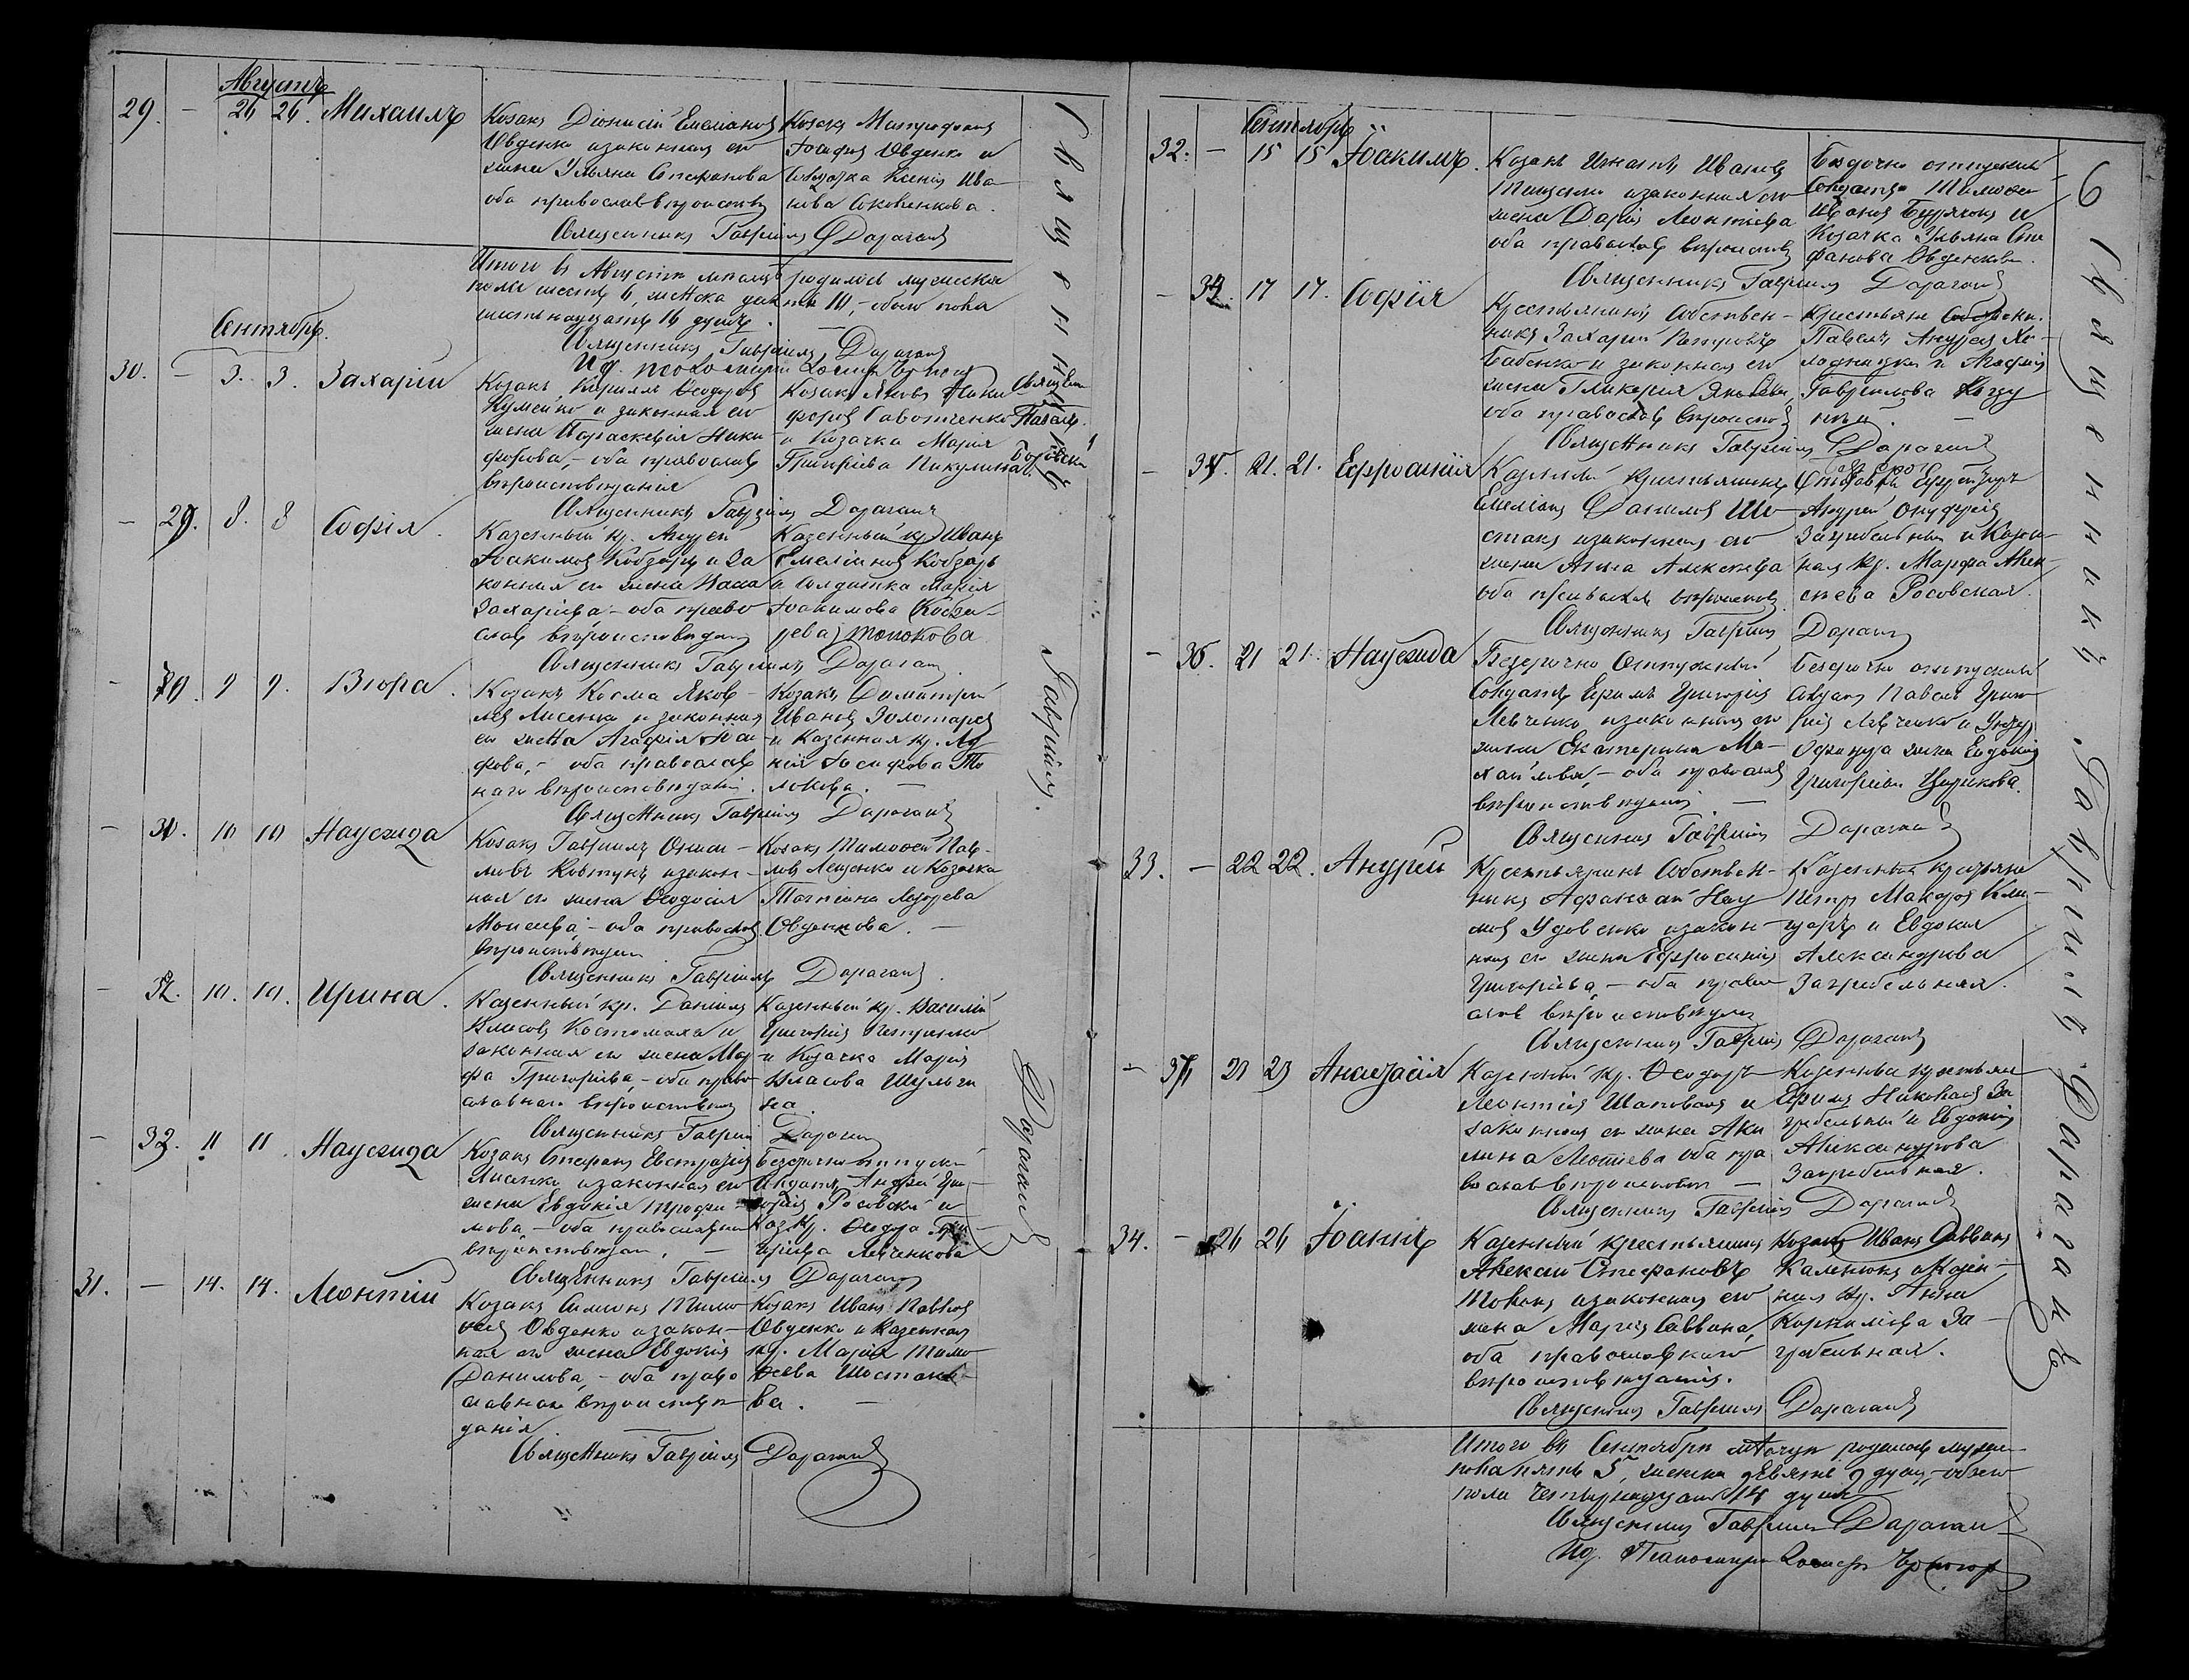 Августъ
29. — 26 26. Михаилъ
Козакъ Діонисій Емеліановъ
Овденко и законная его
жена Ульяна Стефанова
оба православ вѣроисповѣд
Козакъ Митрофанъ
Іосифовъ Овденко и
Ксенія Ива
нова
Священникъ Гавріилъ Дараганъ
Итого въ Августѣ мѣсяцѣ родилось мужеска
пола шесть 6, женска 10, — обоего пола
шестьнадцать 16 душъ.
Священникъ Гавріилъ Дараганъ
Сентябрь.
30. — 3. 3. Захарій
Козакъ Кирилъ Ѳеодоровъ
и законная его
жена Параскевія Ники-
форова, — оба православ
вѣроисповѣданія
Козакъ Яковъ Ники
форовъ
и Козачка Марія
Григоріева Пикулина
Священникъ Гавріилъ Дараганъ
— 29. 8. 8 Софія.
Казенный кр. Андрей
Іоакимовъ Кобзарь и за
конная его жена
Захаріева — оба право
слав вѣроисповѣдан
Казенный кр. Иванъ
Емеліановъ Кобзарь
и Солдатка Марія
Іоакимова Кобза-
рева
Священникъ Гавріилъ Дараганъ
— 9. 9.
Козакъ Косма Яков-
левъ Лисенко и законная
его жена Агафія Іоси-
фова, — оба православ
наго вѣроисповѣданій.
Козакъ Димитрій
Ивановъ Золотаревъ
и Казенная кр.
Іосифова То
локова. —
Священникъ Гавріилъ Дараганъ
— 10 10 Надежда
Козакъ Гавріилъ
Ковтунъ и закон-
ная его жена Ѳеодосія
Моисеева, — оба православ
вѣроисповѣдан
Козакъ Тимоѳей Пав-
ловъ Лещенко и Козачка
Татіана
Овденкова. —
Священникъ Гавріилъ Дараганъ.
— 10. 10. Ирина.
Казенный кр. Даніилъ
Власовъ Костомаха и
законная его жена Мар
фа Григоріева, — оба право
славнаго вѣроисповѣд
Казенный кр. Василій
Григоріевъ Петренко
и Козачка Марія
Власова Шульги
на.
Священникъ Гавріилъ Дараганъ
— 11 11. Надежда
Козакъ Стефанъ Евстафіевъ
Лисенко и законная его
жена Евдокія Трофи-
мова, — оба православн
вѣроисповѣдан. —
Безсрочно отпускн
Солдатъ Андрей Гри-
горіевъ Росовскій и
Каз. кр. Ѳеодора Гри-
горіева Левченкова
Священникъ Гавріилъ Дараганъ
31. — 14. 14. Леонтій
Козакъ Симеонъ Тимо
ѳеевъ Овденко и закон-
ная его жена Евдокія
Данилова, — оба право
славнаго вѣроисповѣ
данія
Козакъ Иванъ Павловъ
Овденко и Казенная
кр. Марія Тимо
ѳеева Шостако-
ва. —
Священникъ Гавріилъ Дараганъ
Священникъ Гавріилъ Дараганъ
Сентябрь
32. — 15 15 Іоакимъ.
Козакъ Игнатъ Ивановъ
и законная его
жена Дарія Леонтіева
оба православ вѣроисповѣд
Безсрочно отпускный
Солдатъ Тимоѳей
Ивановъ и
Козачка Ульяна Сте
фанова Овденкова.
Священникъ Гавріилъ Дараганъ
— 17 17. Софія
Крестьянинъ Собствен-
никъ Захарій Петровъ
Бабенко и законная его
жена Гликерія Яковлева,
оба православ вѣроисповѣд
Крестьяне Собствени.
Павелъ Андреевъ Хо-
лодницкій и Агафія
Гавріилова
Священникъ Гавріилъ Дараганъ
— 21. 21. Ефросинія
Казенный Крестьянинъ
Емеліанъ Даниловъ Шо-
стакъ и законная его
жена Анна Алексѣева
оба православ вѣроисповѣд.
Андрей Онуфріевъ
Загребельный и Казен-
ная кр. Марфа Алек-
сѣева Росовская.
Священникъ Гавріилъ Дараганъ
— 21 21. Надежда
Безсрочно Отпускный
Солдатъ Ефимъ Григоріевъ
Левченко, и законная его
жена Екатерина Ми-
хайлова, — оба православ
вѣроисповѣданій —
Безсрочно отпускный
Солдатъ Павелъ Григо
ріевъ Левченко и Унтеръ
Офицера жена Евдокія
Григоріева Цюрикова.
Священникъ Гавріилъ Дараганъ
33. — 22 22. Андрей
Крестьянинъ Собствен-
никъ Афанасій Нау
мовъ Удовенко и закон-
ная его жена Ефросинія
Григоріева, — оба право
слав вѣроисповѣдан
Казенный крестьяни
Петръ Макаровъ Кли-
царь и Евдокія
Александрова
Загребельная.
Священникъ Гавріилъ Дараганъ
— 23 23 Анастасія
Казенный кр. Ѳеодоръ
Леонтіевъ Шаповалъ и
законная его жена Аки
лина Леонтіева оба пра
вослав вѣроисповѣд —
Казенные крестьяни
Ефимъ Николаевъ За
гребельный и Евдокія
Александрова
Загребельная.
Священникъ Гавріилъ Дараганъ
34. — 26 26 Іоаннъ
Казенный крестьянинъ
Алексій Стефановъ
и законная его
жена Марія Саввина,
оба православнаго
вѣроисповѣданія.
Козакъ Иванъ Саввинъ
Каленюкъ и Казен-
ная кр. Анна
Корниліева За-
гребельная.
Священникъ Гавріилъ Дараганъ
Итого въ Сентябрѣ мѣсяцѣ родилось мужеск
пола пять 5, женска девять 9 душъ, — обоего
пола четырнадцать 14 душъ
Священникъ Гавріилъ Дараганъ
Священникъ Гавріилъ Дараганъ